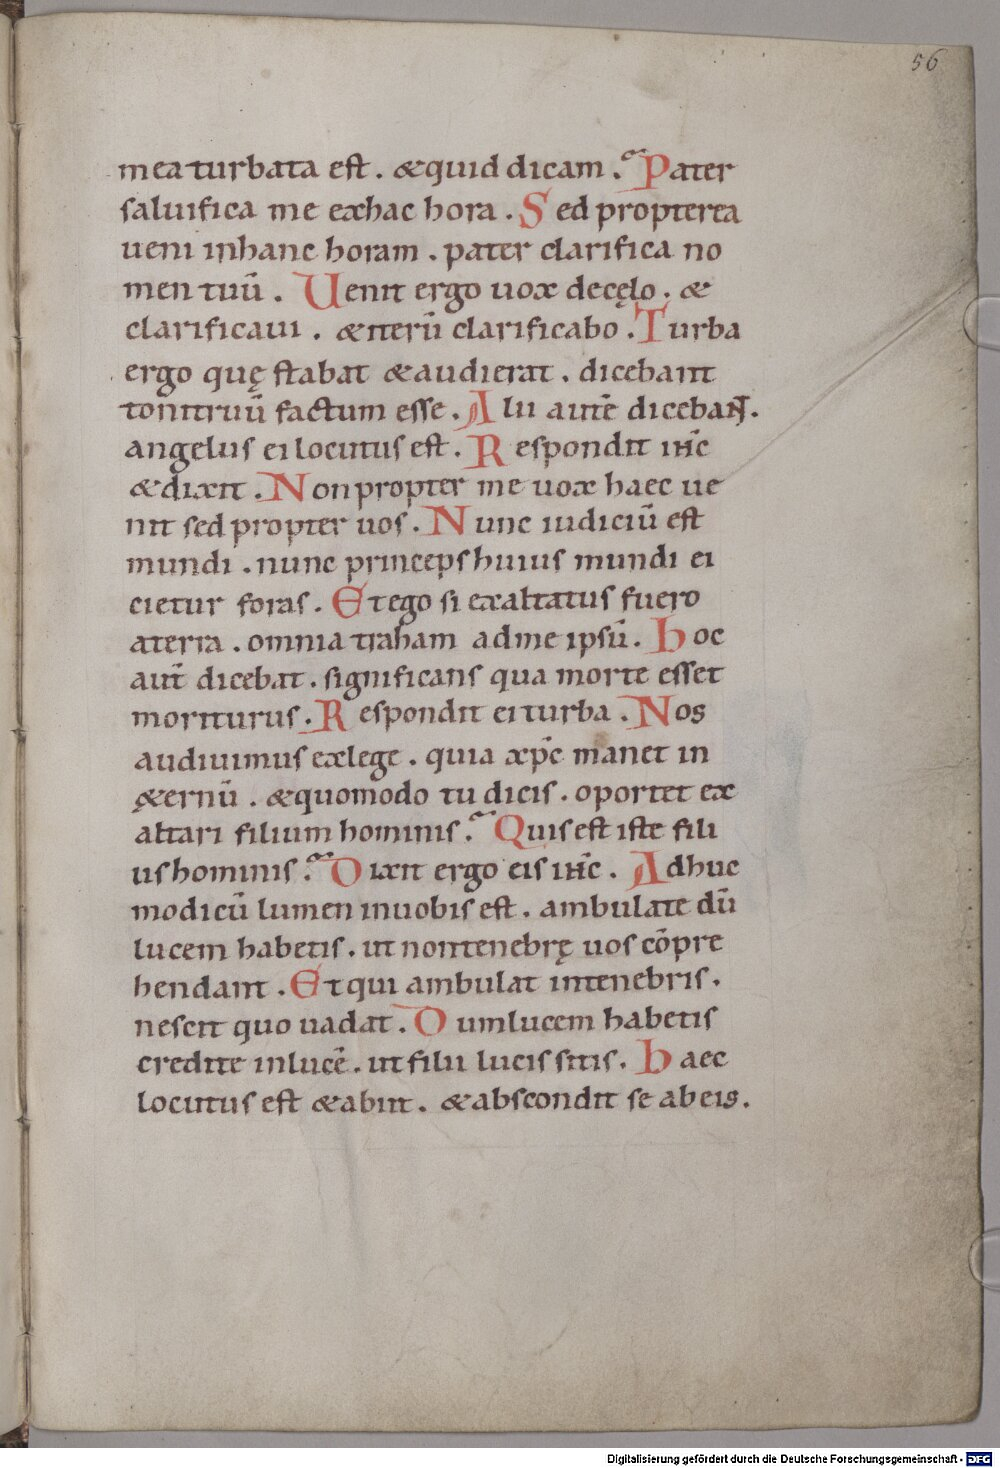 56
mea turbata est . & quid dicam . Pater
saluifica me ex hac hora . Sed propterea
ueni in hanc horam . pater clarifica no
men tuū . Uenit ergo uox de cęlo . &
clarificaui . & iterū clarificabo . Turba
ergo quę stabat & audierat . dicebant
tonitruū factum esse . Alii autē dicebant .
angelus ei locutus est . Respondit ihc̄
& dixit . Non propter me uox haec ue
nit sed propter uos . Nunc iudiciū est
mundi . nunc princeps huius mundi ei
cietur foras . Et ego si exaltatus fuero
a terra . omnia traham ad me ipsū . Hoc
aut̄ dicebat . significans qua morte esset
moriturus . Respondit ei turba . Nos
audiuimus ex lege . quia xp̄c manet in
&ernū . & quomodo tu dicis . oportet ex
altari filium hominis . Quis est iste fili
us hominis . Dixit ergo eis ihc̄ . Adhuc
modicū lumen in uobis est . ambulate dū
lucem habetis . ut non tenebrę uos cōpre
hendant . Et qui ambulat in tenebris .
nescit quo uadat . Dum lucem habetis
credite in lucē . ut filii lucis sitis . Haec
locutus est & abiit . & abscondit se ab eis .
Digitalisierung gefördert durch die Deutsche Forschungsgemeinschaft - DFG